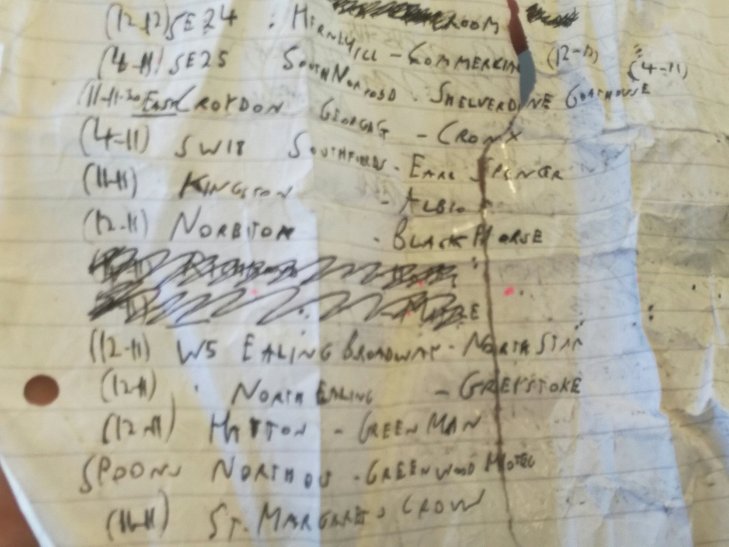 (12-12) SE24 : HERNHILL - COMMERCIAL (12-11)
(4-11) SE25 SOUTH NORWOOD - SHELVERDINE GOATHOUSE (4-11)
(11-11-30 EAST CROYDON GEORGE ST - CRONX
(4-11) SW18 SOUTHFIELDS - EARL SPENCER
(11-11) KINGSTON - ALBION
(12-11) NORBITON - BLACK HORSE
(12-11) W5 EALING BROADWAY - NORTH STAR
(12-11) NORTH EALING - GREYSTOKE
(12-11) HATTON - GREEN MAN
SPOONS - GREENWOOD HOTEL
(11-11) ST. MARGARETS CROWN